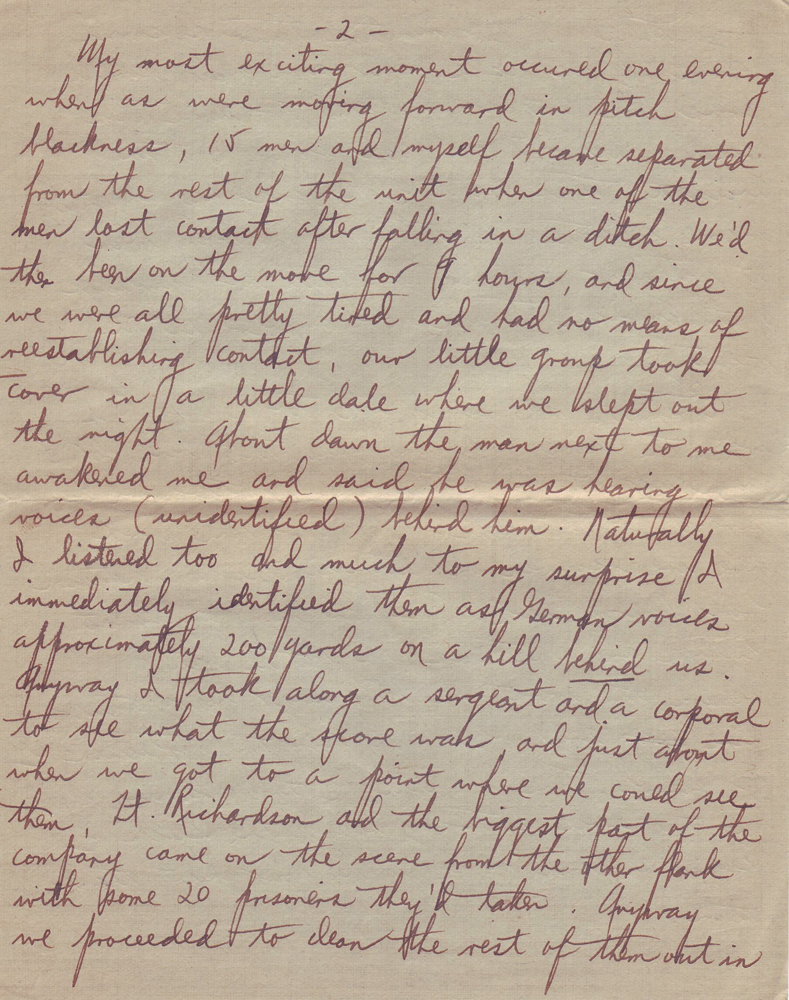 - 2 -
My most exciting moment occured one evening
when as were moving forward in pitch
blackness, 15 men and myself became separated
from the rest of the unit when one of the
men lost contact after falling in a ditch. We'd
then been on the move for 9 hours, and since
we were all pretty tired and had no means of
reestablishing contact, our little group took
cover in a little dale where we slept out
the night. About dawn the man next to me
awakened me and said he was hearing
voices (unidentified) behind him. Naturally
I listened too and much to my surprise I
immediately identified them as German voices
approximately 200 yards on a hill behind us.
Anyway I took along a sergeant and a corporal
to see what the score was and just about
when we got to a point where we could see
them, Lt. Richardson and the biggest part of the
company came on the scene from the other flank
with some 20 prisoners they'd taken. Anyway
we proceeded to clean the rest of them out in